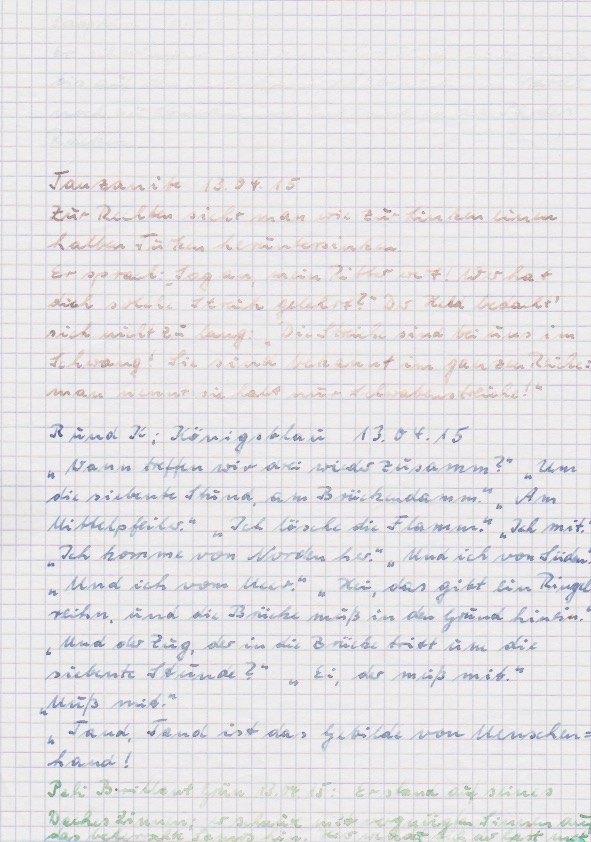 Tanzanite 13.04.15
Zur Rechten sieht man wie zur Linken einen
halben Türken heruntersinken.
Er sprach: „Sag an, mein Ritter wert! Wer hat
dich solche Streich gelehrt?" Der Held bedacht'
sich nicht zu lang: „Die Streiche sind bei uns im
Schwang! Sie sind bekannt im ganzen Reiche:
man nennt sie halt nur Schwabenstreiche!"
R und K; Königsblau 13.04.15
„Wann treffen wir drei wieder zusamm?" „Um
die siebente Stund, am Brückendamm." „Am
Mittelpfeiler." „Ich lösche die Flamm." „Ich mit."
„Ich komme von Norden her." „Und ich von Süden."
„Und ich vom Meer." „Hei, das gibt ein Ringel
reihn, und die Brücke muß in den Grund hinein."
„Und der Zug, der in die Brücke tritt um die
siebente Stunde?" „Ei, der muß mit."
„Muß mit."
„Tand, Tand ist das Gebilde von Menschen=
hand!
Peli Brillant Grün 13.04.15: Er stand auf seines
Daches Zinnen; er schaute mit vergnügten Sinnen auf
das beherrschte Samos hin.